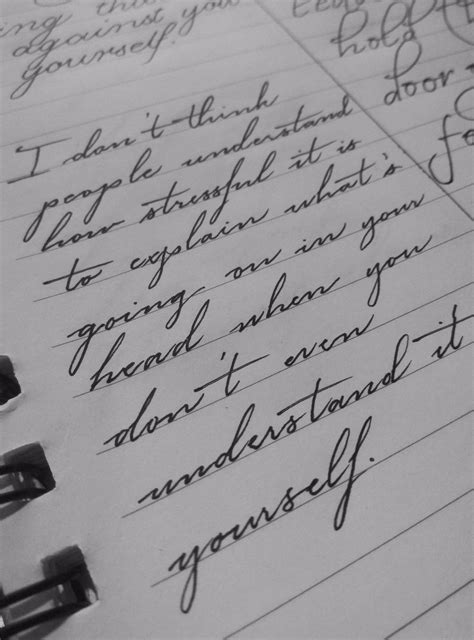 against you
yourself.
hold
door
I don't think
people understand
how stressful it is
to explain what's
going on in your
head when you
don't even
understand it
yourself.